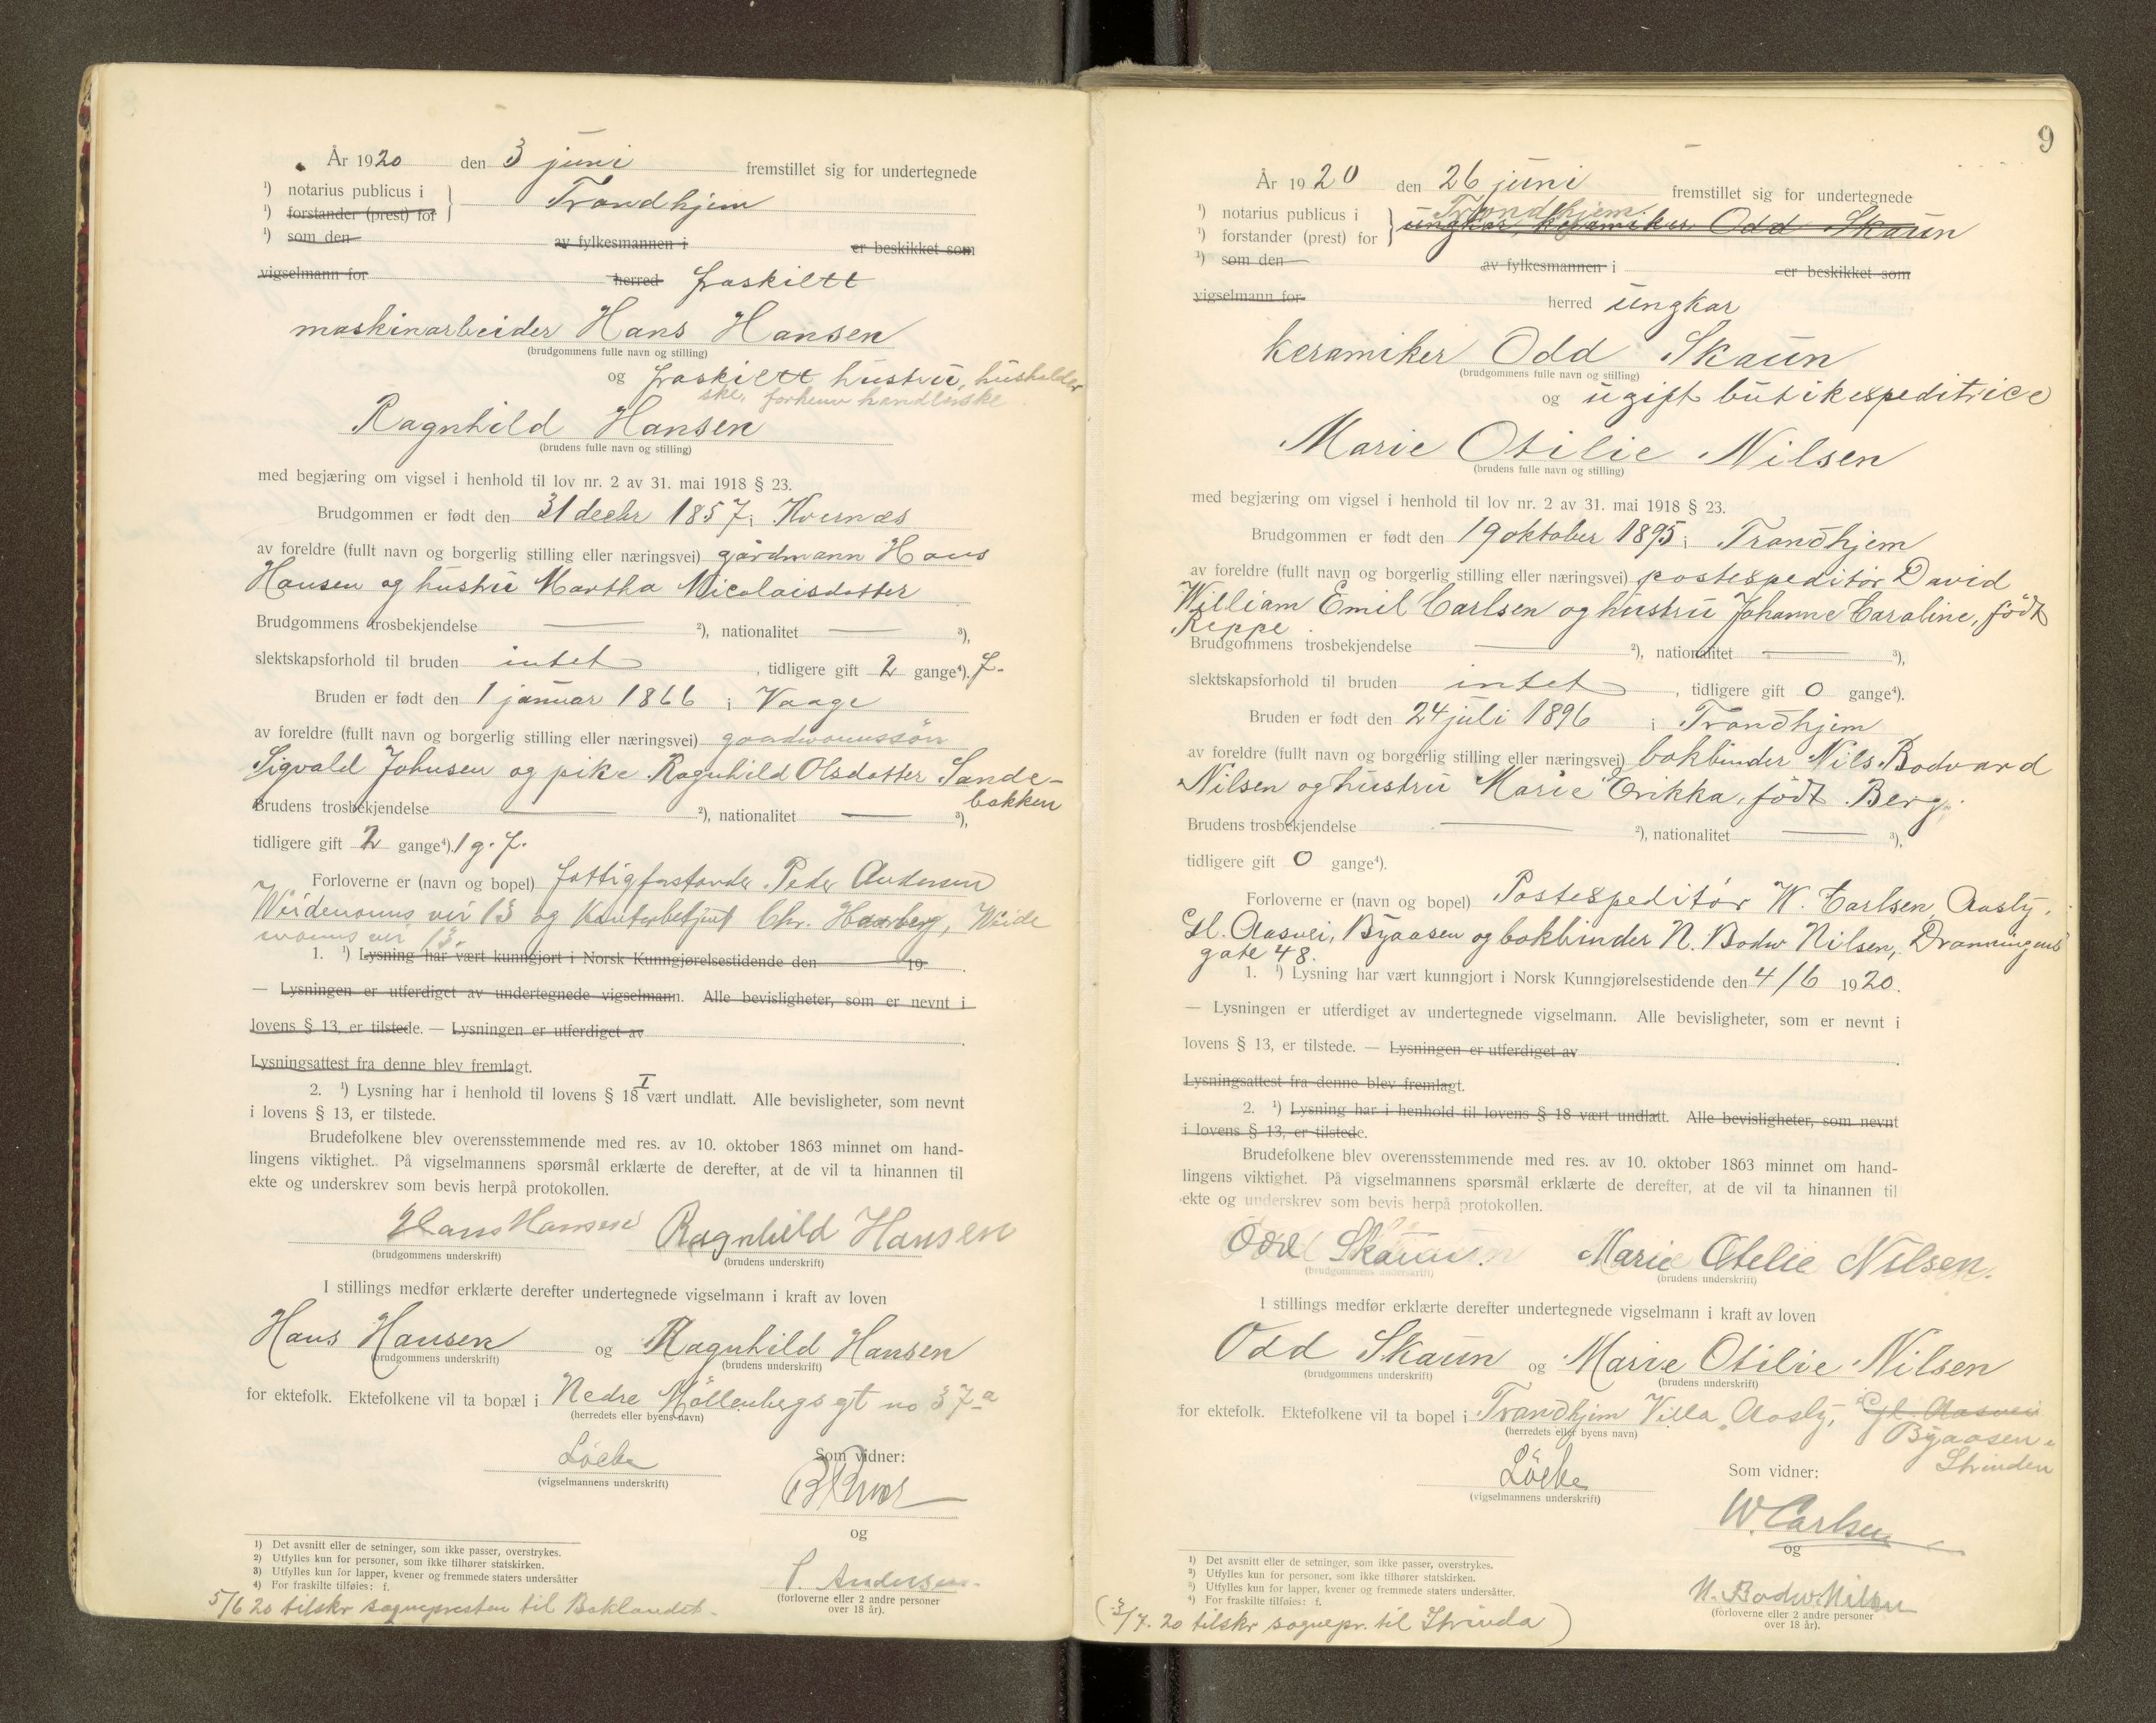 År 1920 den 3 juni fremstillet sig for undertegnede
¹) notarius publicus i } Trondhjem
¹) forstander (prest) for
¹) som den av fylkesmannen i er beskikket som
vigselmann for herred fraskilt
maskinarbeider Hans Hansen
(brudgommens fulle navn og stilling)
og fraskilt hustru, husholder
ske, forhenv handlerske
Ragnhild Hansen
(brudens fulle navn og stilling)
med begjæring om vigsel i henhold til lov nr. 2 av 31. mai 1918 § 23.
Brudgommen er født den 31 decbr 1857 i Kvernæs
av foreldre (fullt navn og borgerlig stilling eller næringsvei) gårdmann Hans
Hansen og hustru Martha Nicolaisdatter
Brudgommens trosbekjendelse — ²), nationalitet — ³),
slektskapsforhold til bruden intet, tidligere gift 2 gange⁴). f.
Bruden er født den 1 januar 1866 i Vaage
av foreldre (fullt navn og borgerlig stilling eller næringsvei) gaardmannssøn
Sigvald Johnsen og pike Ragnhild Olsdatter Sande-
bakken
Brudens trosbekjendelse — ²), nationalitet — ³),
tidligere gift 2 gange⁴). 1 g. f.
Forloverne er (navn og bopel) fattigforstander Peder Andersen
Weidemanns vei 13 og Kontorbetjent Chr. Haarberg, Weide
manns vei 13.
1. ¹) Lysning har vært kunngjort i Norsk Kunngjørelsestidende den 19 .
— Lysningen er utferdiget av undertegnede vigselmann. Alle bevisligheter, som er nevnt i
lovens § 13, er tilstede. — Lysningen er utferdiget av .
Lysningsattest fra denne blev fremlagt.
2. ¹) Lysning har i henhold til lovens § 18 I vært undlatt. Alle bevisligheter, som nevnt
i lovens § 13, er tilstede.
Brudefolkene blev overensstemmende med res. av 10. oktober 1863 minnet om hand-
lingens viktighet. På vigselmannens spørsmål erklærte de derefter, at de vil ta hinannen til
ekte og underskrev som bevis herpå protokollen.
Hans Hansen Ragnhild Hansen
(brudgommens underskrift) (brudens underskrift)
I stillings medfør erklærte derefter undertegnede vigselmann i kraft av loven
Hans Hansen og Ragnhild Hansen
(brudgommens underskrift) (brudens underskrift)
for ektefolk. Ektefolkene vil ta bopæl i Nedre Möllenbergs gt no 37 a
(herredets eller byens navn)
Löcke Som vidner:
(vigselmannens underskrift)
og
P. Andersen
(forloverne eller 2 andre personer
over 18 år).
¹) Det avsnitt eller de setninger, som ikke passer, overstrykes.
²) Utfylles kun for personer, som ikke tilhører statskirken.
³) Utfylles kun for lapper, kvener og fremmede staters undersåtter
⁴) For fraskilte tilføies: f.
5/6 20 tilskr sognepresten til Baklandet.
9
År 1920 den 26 juni fremstillet sig for undertegnede
¹) notarius publicus i } Trondhjem
¹) forstander (prest) for ungkar, keramiker Odd Skaun
¹) som den av fylkesmannen i er beskikket som
vigselmann for herred ungkar
keramiker Odd Skaun
(brudgommens fulle navn og stilling)
og ugift butikexpeditrice
Marie Otilie Nilsen
(brudens fulle navn og stilling)
med begjæring om vigsel i henhold til lov nr. 2 av 31. mai 1918 § 23.
Brudgommen er født den 19 oktober 1895 i Trondhjem
av foreldre (fullt navn og borgerlig stilling eller næringsvei) postexpeditör David
William Emil Carlsen og hustru Johanne Caroline, född
Reppe
Brudgommens trosbekjendelse — ²), nationalitet — ³),
slektskapsforhold til bruden intet, tidligere gift 0 gange⁴).
Bruden er født den 24 juli 1896 i Trondhjem
av foreldre (fullt navn og borgerlig stilling eller næringsvei) bokbinder Nils Bodvard
Nilsen og hustru Marie Erikka, född Berg.
Brudens trosbekjendelse — ²), nationalitet — ³),
tidligere gift 0 gange⁴).
Forloverne er (navn og bopel) Postexpeditör W. Carlsen, Aasly,
Gl. Aasvei, Byaasen og bokbinder N. Bodv Nilsen, Dronningens
gate 48.
1. ¹) Lysning har vært kunngjort i Norsk Kunngjørelsestidende den 4/6 1920.
— Lysningen er utferdiget av undertegnede vigselmann. Alle bevisligheter, som er nevnt i
lovens § 13, er tilstede. — Lysningen er utferdiget av .
Lysningsattest fra denne blev fremlagt.
2. ¹) Lysning har i henhold til lovens § 18 vært undlatt. Alle bevisligheter, som nevnt
i lovens § 13, er tilstede.
Brudefolkene blev overensstemmende med res. av 10. oktober 1863 minnet om hand-
lingens viktighet. På vigselmannens spørsmål erklærte de derefter, at de vil ta hinannen til
ekte og underskrev som bevis herpå protokollen.
Odd Skaun. Marie Otelie Nilsen.
(brudgommens underskrift) (brudens underskrift)
I stillings medfør erklærte derefter undertegnede vigselmann i kraft av loven
Odd Skaun og Marie Otilie Nilsen
(brudgommens underskrift) (brudens underskrift)
for ektefolk. Ektefolkene vil ta bopel i Trondhjem Villa Aasly, Gl. Aasvei
(herredets eller byens navn) Byaasen.
Strinden
Löcke Som vidner:
(vigselmannens underskrift)
W. Carlsen
og
N. Bodv. Nilsen
(forloverne eller 2 andre personer
over 18 år).
¹) Det avsnitt eller de setninger, som ikke passer, overstrykes.
²) Utfylles kun for personer, som ikke tilhører statskirken.
³) Utfylles kun for lapper, kvener og fremmede staters undersåtter.
⁴) For fraskilte tilføies: f.
(3/7. 20 tilskr sognepr. til Strinda)